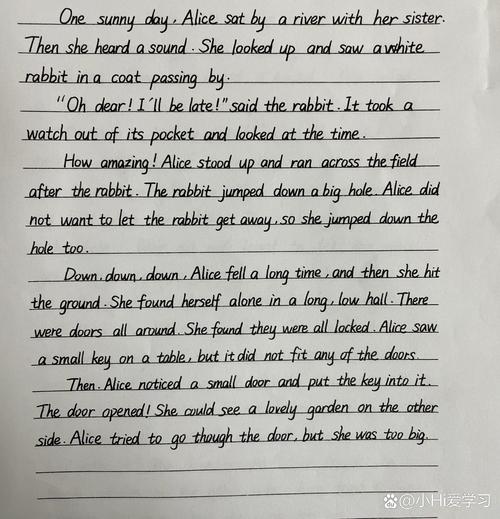 One sunny day, Alice sat by a river with her sister.
Then she heard a sound. She looked up and saw a white
rabbit in a coat passing by.
"Oh dear! I'll be late!" said the rabbit. It took a
watch out of its pocket and looked at the time.
How amazing! Alice stood up and ran across the field
after the rabbit. The rabbit jumped down a big hole. Alice did
not want to let the rabbit get away, so she jumped down the
hole too.
Down, down, down, Alice fell a long time, and then she hit
the ground. She found herself alone in a long, low hall. There
were doors all around. She found they were all locked. Alice saw
a small key on a table, but it did not fit any of the doors.
Then. Alice noticed a small door and put the key into it.
The door opened! She could see a lovely garden on the other
side. Alice tried to go though the door, but she was too big.
@小Hi爱学习